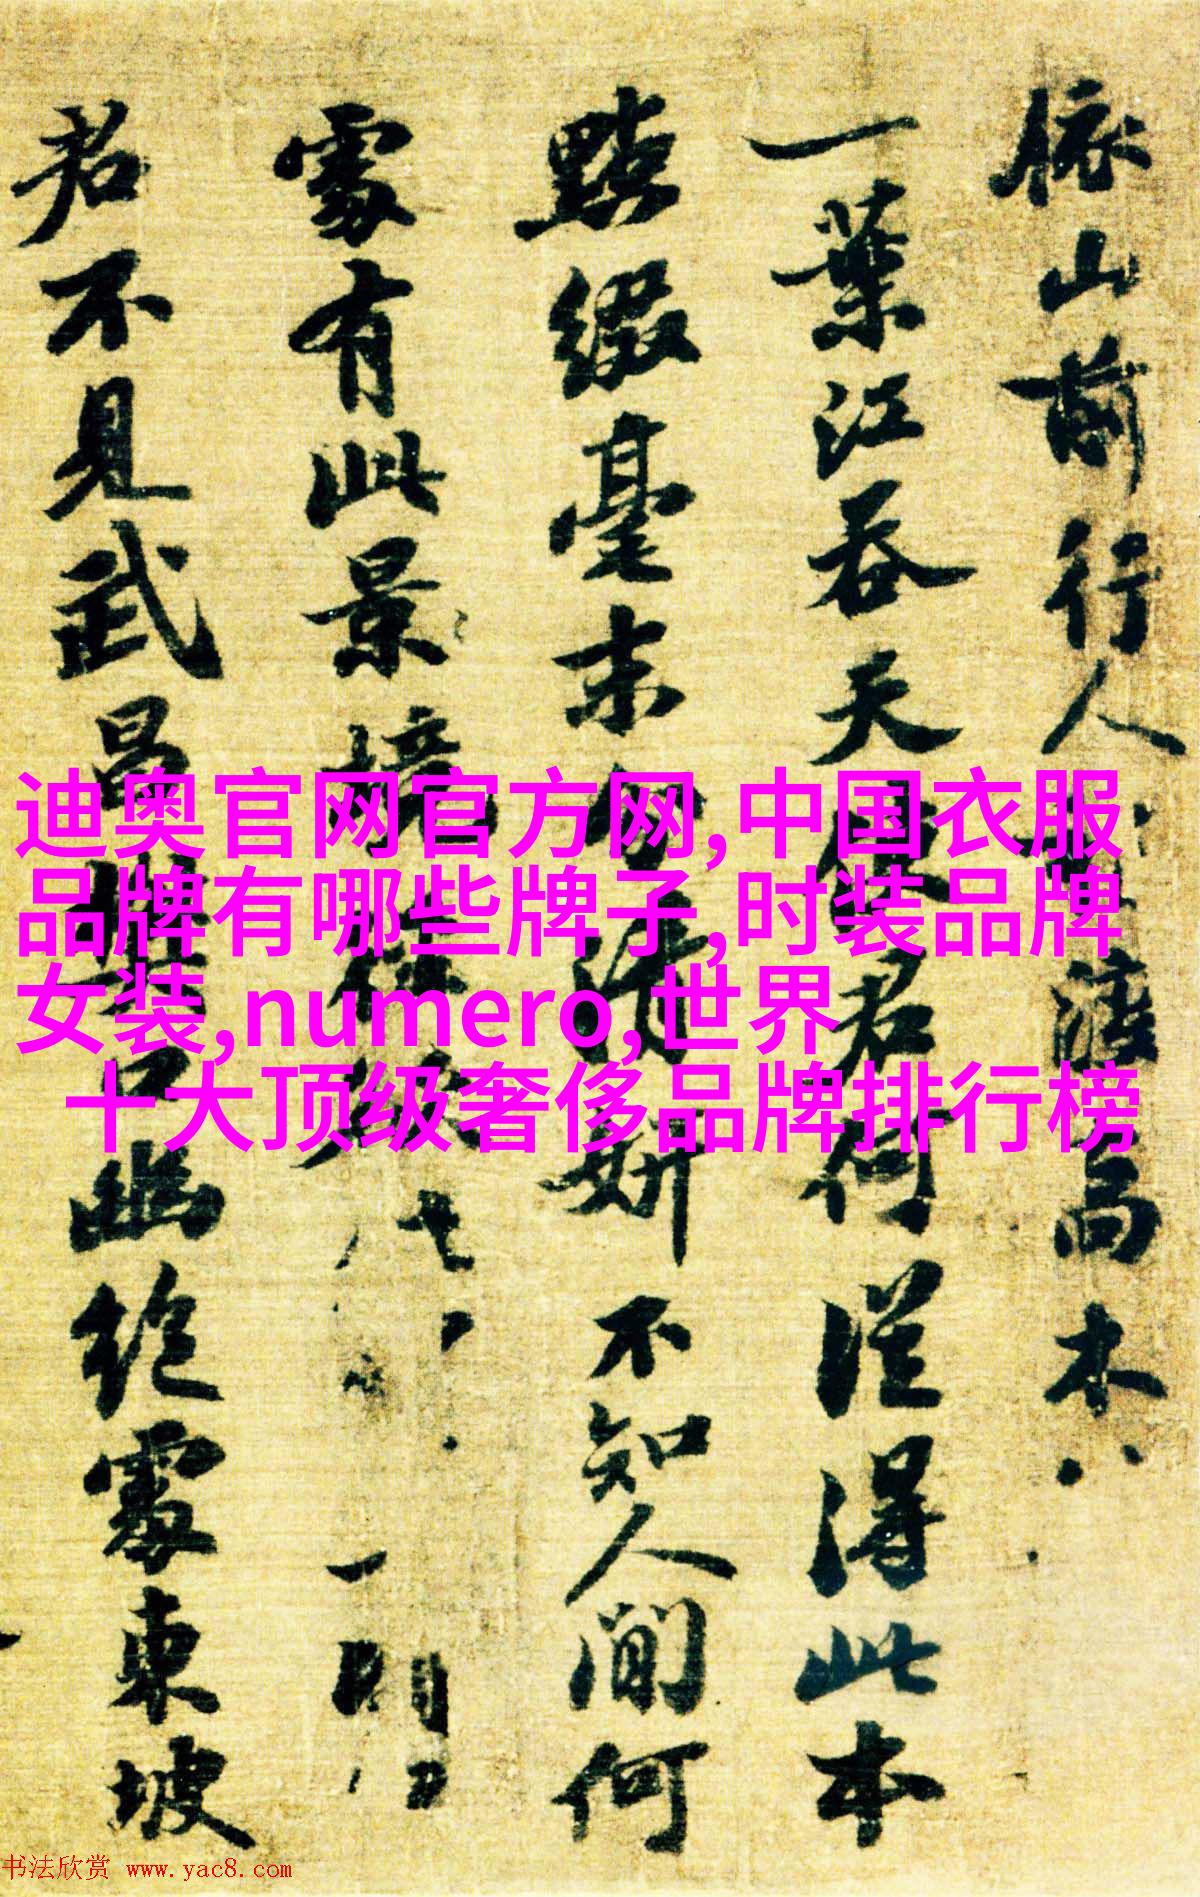 依山前行人渡高木
一葉江吞天使君何從得此本
點綴毫末分清妍不知人間何
處有此景
君不見武昌樊口幽絕處東坡
迪奥官网官方网,中国衣服
品牌有哪些牌子,时装品牌
女装,numero,世界
十大顶级奢侈品牌排行榜
书法欣赏 www.yac8.com